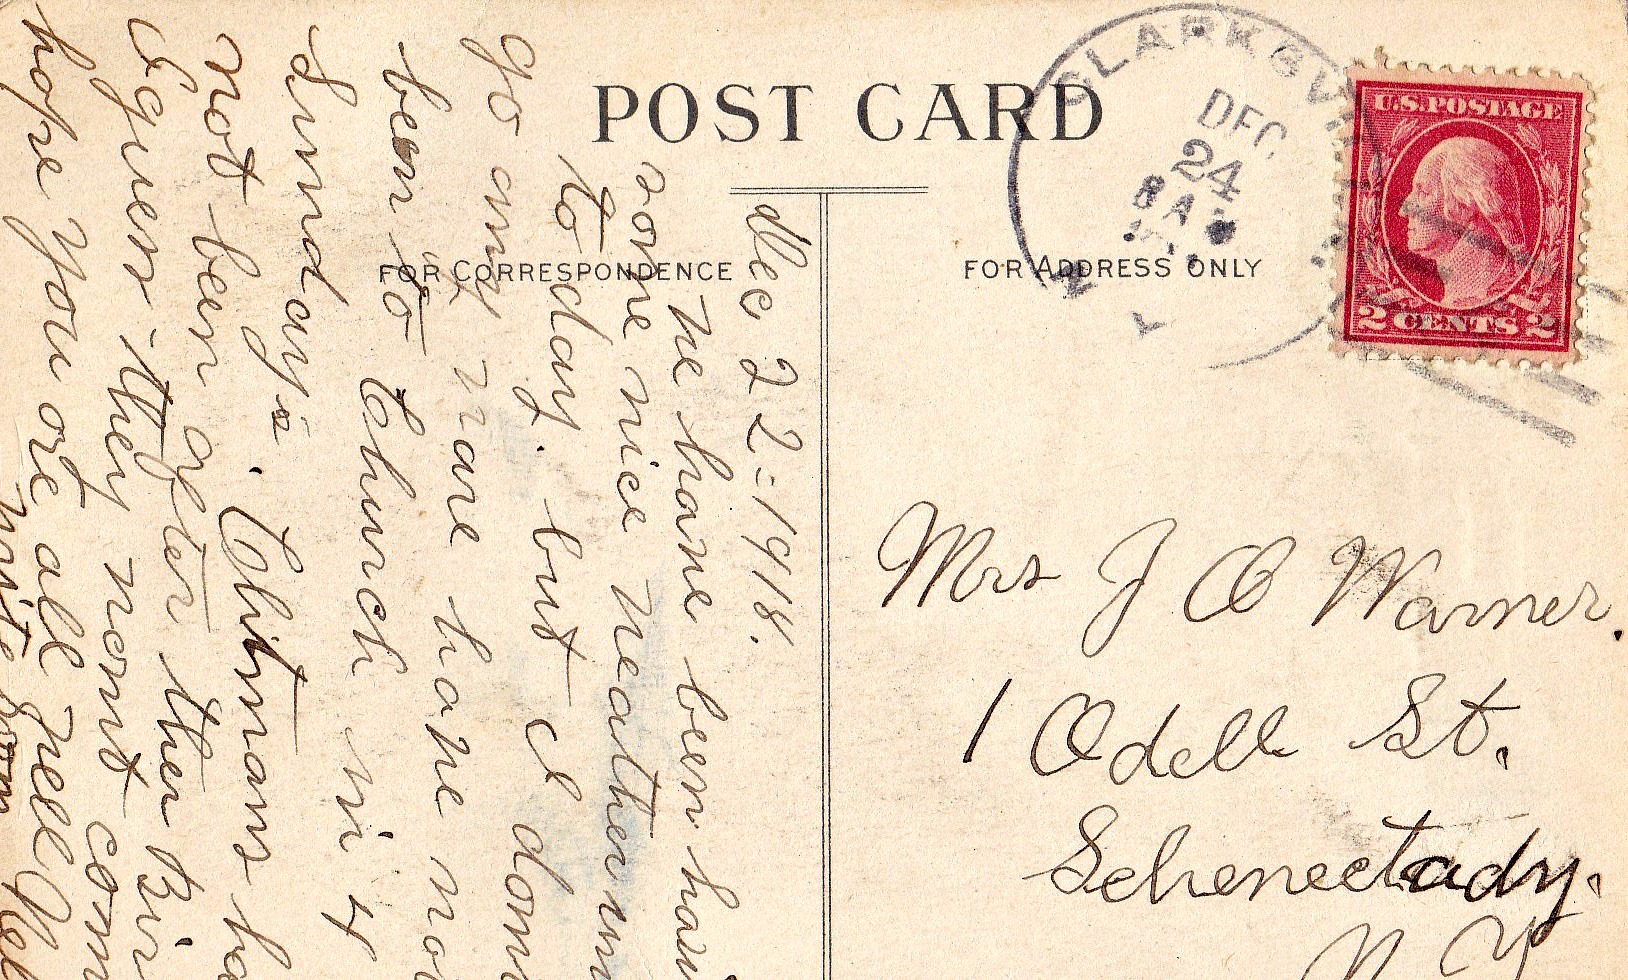 POST CARD
FOR CORRESPONDENCE
FOR ADDRESS ONLY
CLARKSVI
DEC
24
8 A
N
Y
U.S. POSTAGE
2 CENTS 2
Dec 22 - 1918.
We have been havi
some nice weather
to day. but I dont
go any ware hope
been to Church in 4
Sunday's. Chitmans ha
not been after
I guess they wont com
hope you are all well
Mrs J O Warner.
1 Odell St.
Schenectady.
N Y